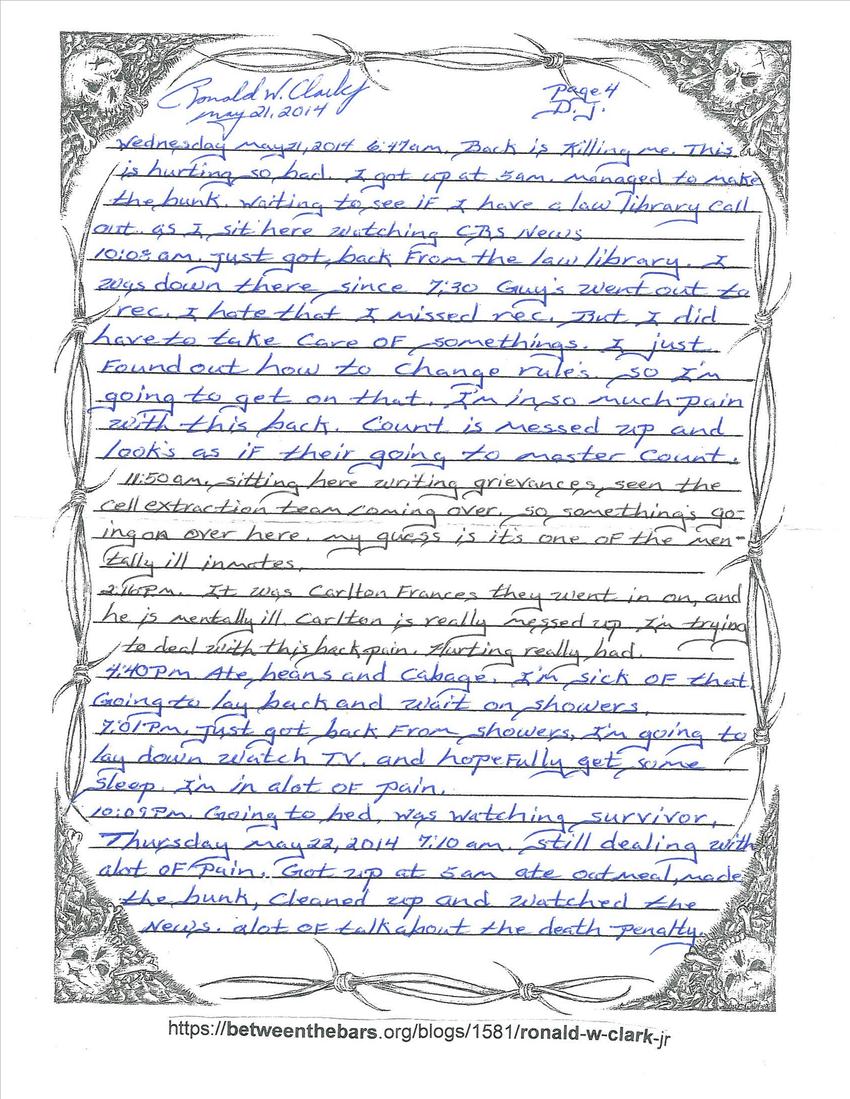 Ronald W. Clark jr
May 21, 2014
page 4
D.J.
Wednesday May 21, 2014 6:47am. Back is Killing me. This
is hurting so bad. I got up at 5am. managed to make
the bunk. Waiting to see if I have a law library call
out. as I sit here watching CBS News
10:08 am. Just got back From the law library. I
was down there since 7:30 Guy's went out to
rec. I hate that I missed rec. But I did
have to take care of somethings. I just
Found out how to change rule's. So I'm
going to get on that. I'm in so much pain
with this back. Count is messed up and
look's as if their going to master count.
11:50am. sitting here writing grievances, seen the
cell extraction team coming over. so something's go-
ing on over here. my guess is it's one of the men-
tally ill inmates.
2:16pm. It was Carlton Frances they went in on, and
he is mentally ill. Carlton is really messed up. I'm trying
to deal with this back pain. Hurting really bad.
4:40pm Ate, beans and Cabage. I'm sick of that.
Going to lay back and wait on showers.
7:01pm. Just got back From showers, I'm going to
lay down watch TV. and hopefully get some
sleep. I'm in alot of pain.
10:09pm. Going to bed, was watching survivor.
Thursday May 22, 2014 7:10 am. still dealing with
alot of Pain. Got up at 5am ate oatmeal, made
the bunk, cleaned up and watched the
News. alot of talk about the death penalty.
https://betweenthebars.org/blogs/1581/ronald-w-clark-jr